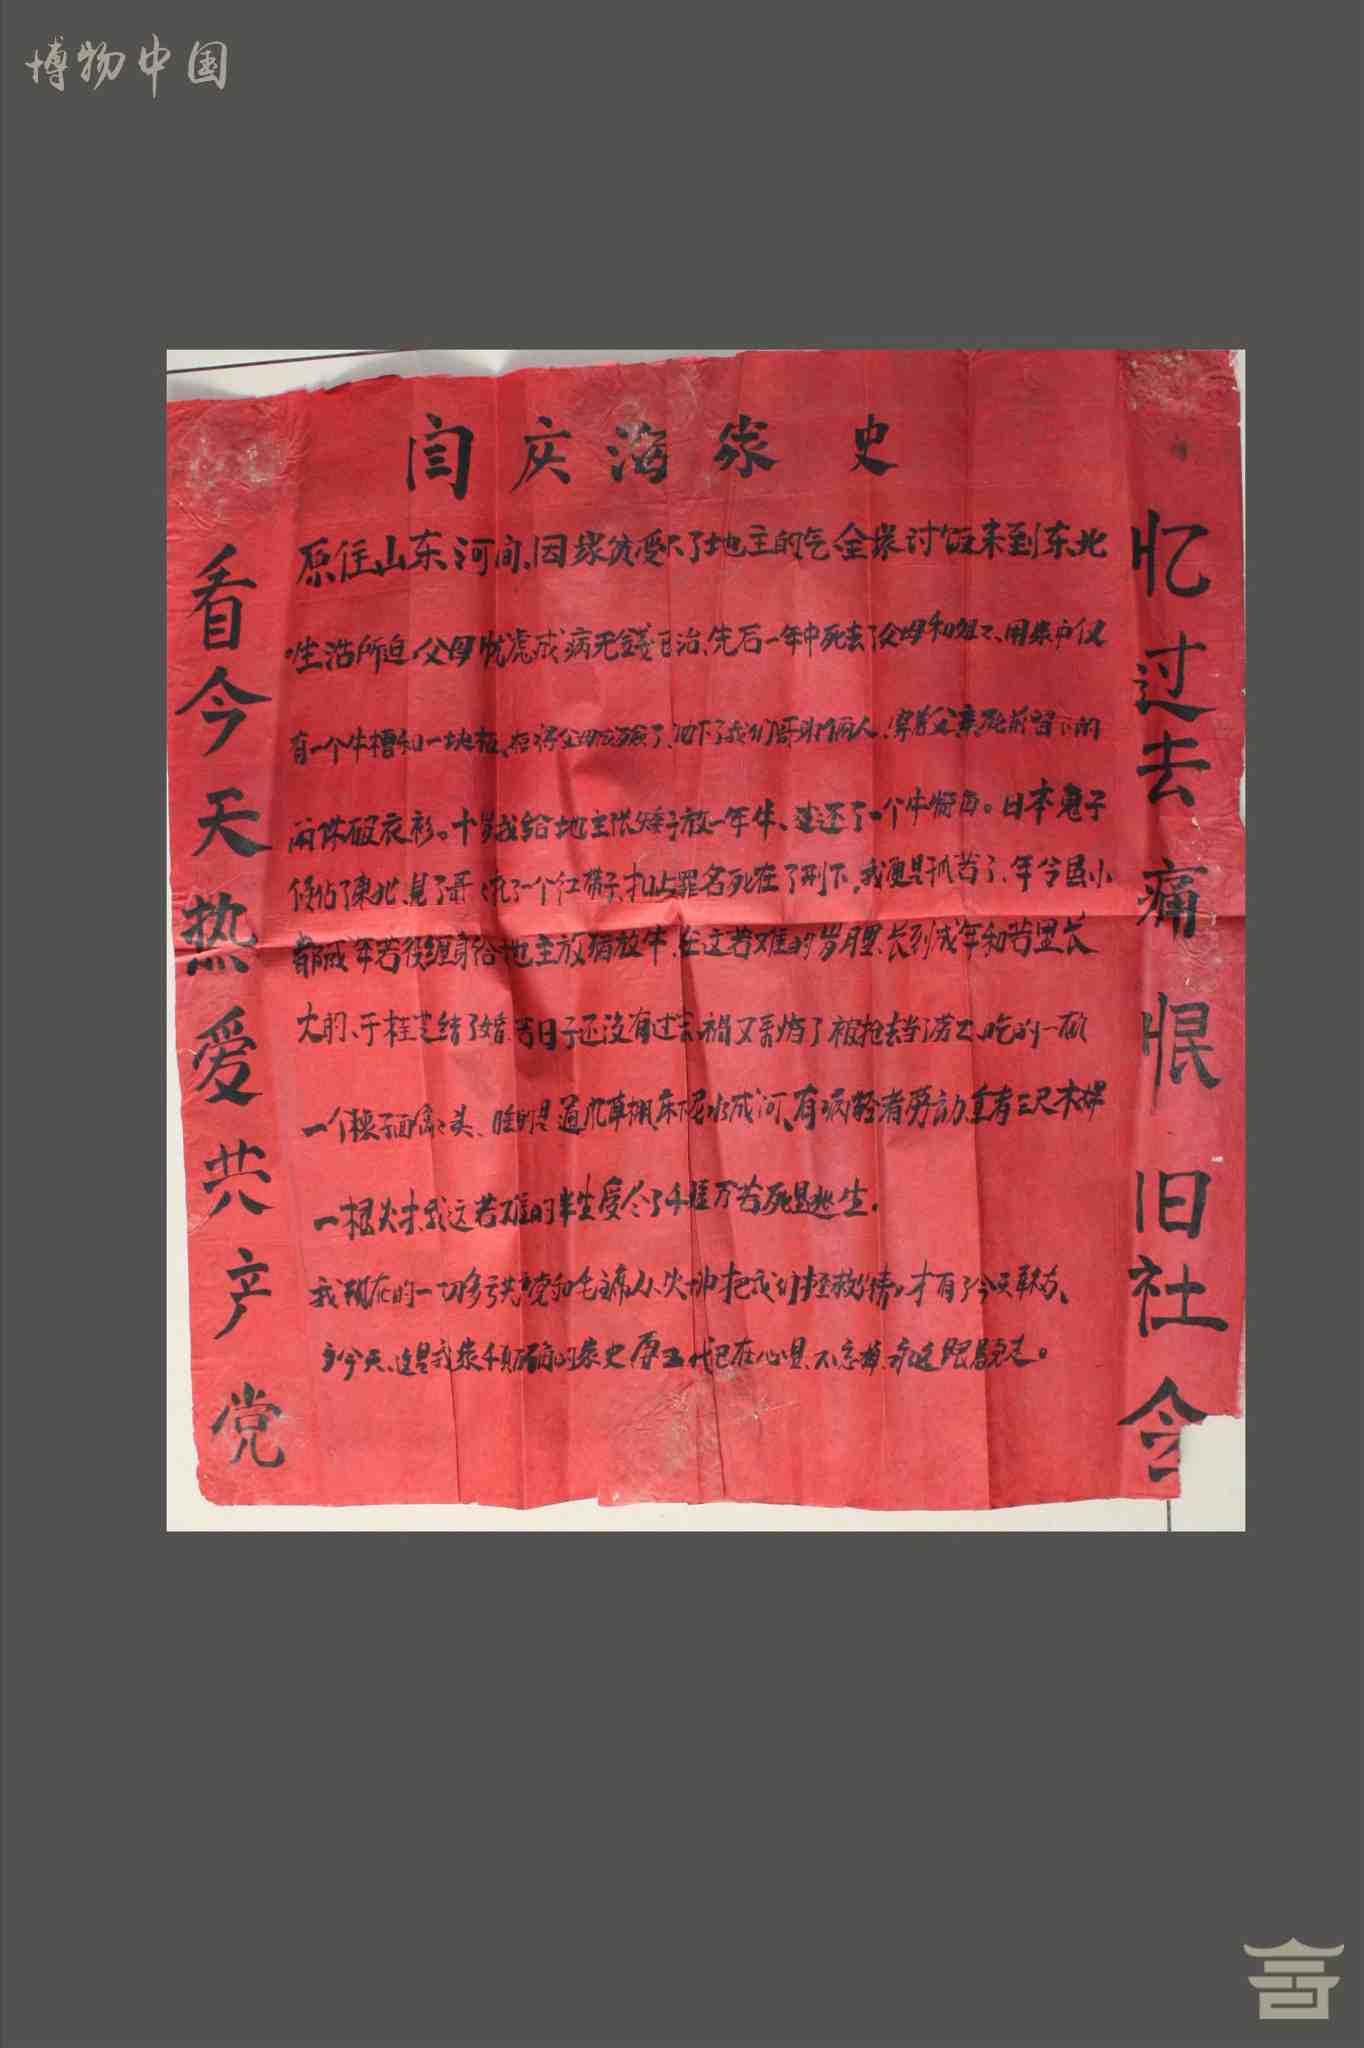 博物中国
闫庆海家史
忆过去痛恨旧社会
原住山东河间、因家贫受不了地主的气、全家讨饭来到东北
生活所迫、父母忧虑成病无錢百治、先后一年中死去了父母和姐姐、用家中仅
有一个牛槽和一块板、父母、下了我们哥两人、穿着父辈死前留下的
两件破衣衫。十岁我给地主张矮子放一年牛、还了一个牛犊。日本鬼子
侵佔了東北、見了哥哥扎了一个红带子、扎上罪名死在了刑下、我便是孤苦了、年令虽小
成年苦役缠身给地主放猪放牛、在这苦难的岁月里、长到成年和苦里长
大的、于桂芝结了婚、苦日子还没有过去、祸又来了被抢去当了劳工、吃的一顿
一个橡子面窝窝头、睡的是道爪草棚、床下泥水成河、有病者劳动、直有三尺木
一根火才、我这苦难的半生受尽了千难万苦死里逃生.
我现在的一切多亏共産党和毛主席从火坑中把我们拯救、才有了今
今天、这是我家千真万确的家史、在心里、不忘掉、永远跟党走。
看今天热爱共产党